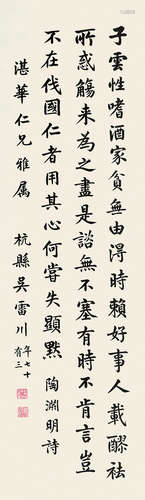 子雲性嗜酒家貧無由得時賴好事人載醪祛
所惑觴来為之盡是諮無不塞有時不肯言豈
不在伐國仁者用其心何嘗失顯黙 陶淵明詩
湛華仁兄雅属 杭縣吳雷川 年七十有三